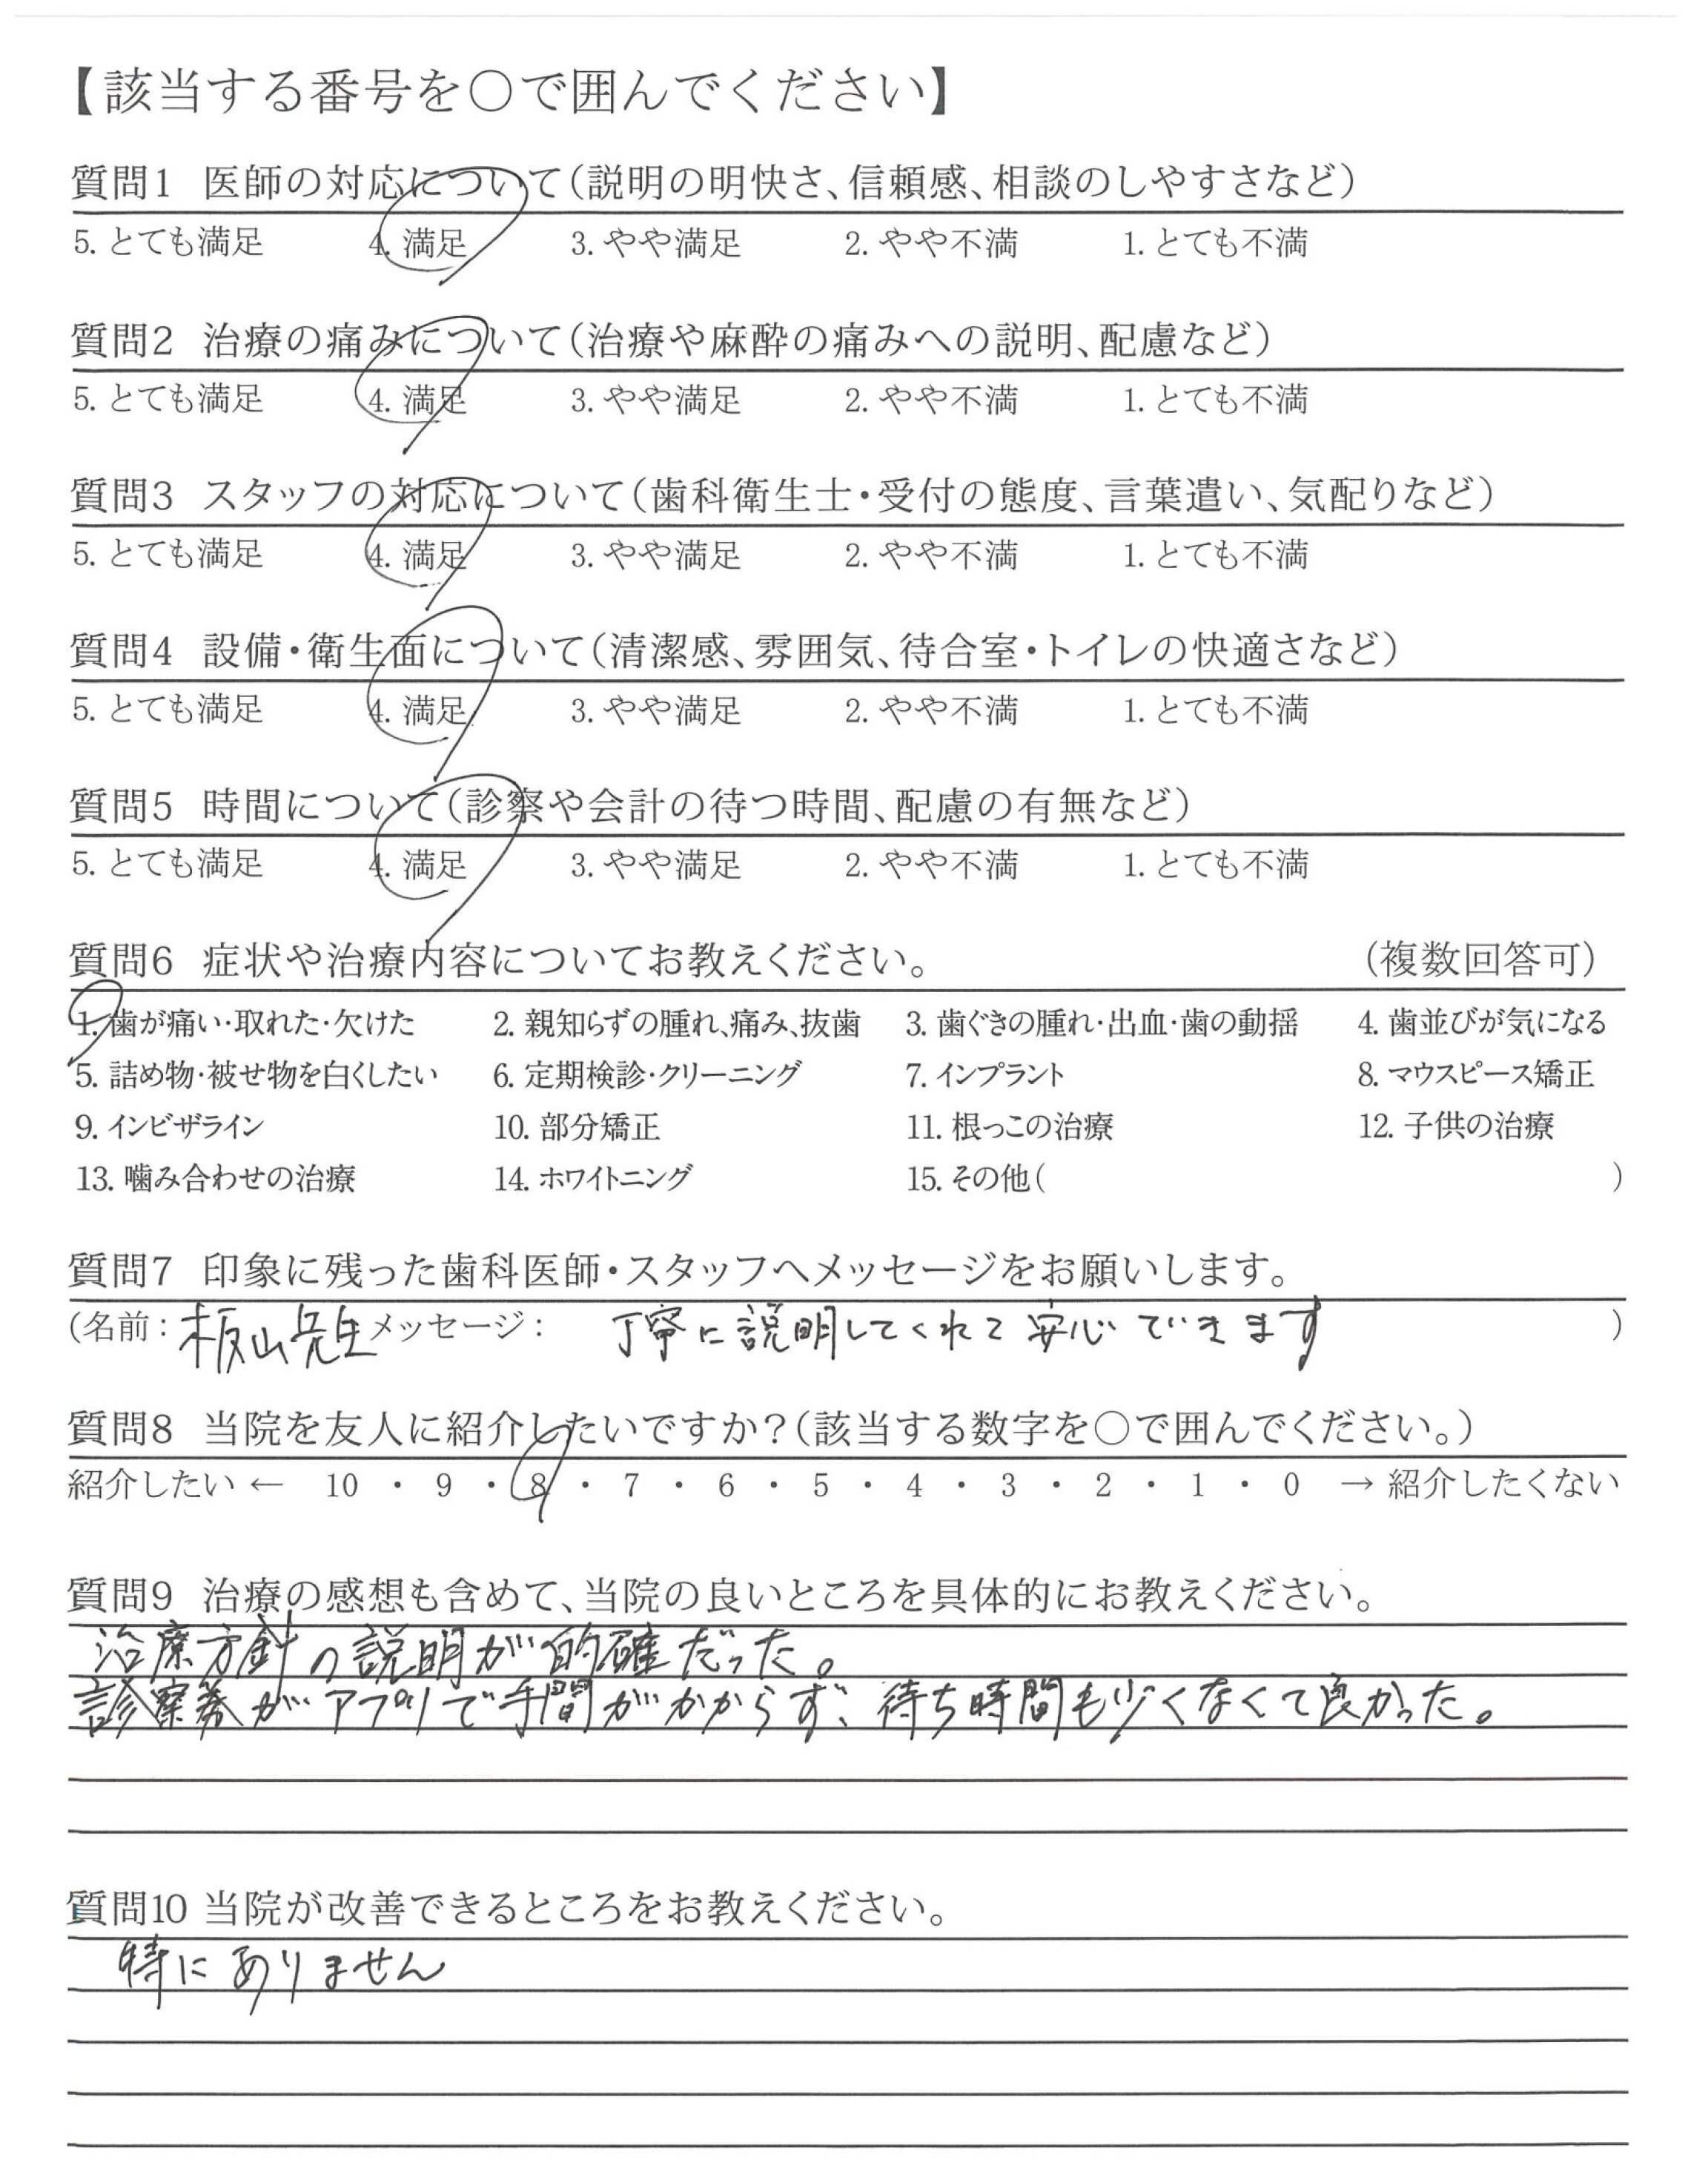 【該当する番号を○で囲んでください】
質問1 医師の対応について(説明の明快さ、信頼感、相談のしやすさなど)
5. とても満足 4. 満足 3. やや満足 2. やや不満 1. とても不満
質問2 治療の痛みについて(治療や麻酔の痛みへの説明、配慮など)
5. とても満足 4. 満足 3. やや満足 2. やや不満 1. とても不満
質問3 スタッフの対応について(歯科衛生士・受付の態度、言葉遣い、気配りなど)
5. とても満足 4. 満足 3. やや満足 2. やや不満 1. とても不満
質問4 設備・衛生面について(清潔感、雰囲気、待合室・トイレの快適さなど)
5. とても満足 4. 満足 3. やや満足 2. やや不満 1. とても不満
質問5 時間について(診察や会計の待つ時間、配慮の有無など)
5. とても満足 4. 満足 3. やや満足 2. やや不満 1. とても不満
質問6 症状や治療内容についてお教えください。 (複数回答可)
1. 歯が痛い・取れた・欠けた 2. 親知らずの腫れ、痛み、抜歯 3. 歯ぐきの腫れ・出血・歯の動揺 4. 歯並びが気になる
5. 詰め物・被せ物を白くしたい 6. 定期検診・クリーニング 7. インプラント 8. マウスピース矯正
9. インビザライン 10. 部分矯正 11. 根っこの治療 12. 子供の治療
13. 噛み合わせの治療 14. ホワイトニング 15. その他( )
質問7 印象に残った歯科医師・スタッフへメッセージをお願いします。
(名前: 板山先生 メッセージ: 丁寧に説明してくれて安心できます )
質問8 当院を友人に紹介したいですか?(該当する数字を○で囲んでください。)
紹介したい ← 10 ・ 9 ・ 8 ・ 7 ・ 6 ・ 5 ・ 4 ・ 3 ・ 2 ・ 1 ・ 0 → 紹介したくない
質問9 治療の感想も含めて、当院の良いところを具体的にお教えください。
治療方針の説明が的確だった。
診察券がアプリで手間がかからず、待ち時間も少くなくて良かった。
質問10 当院が改善できるところをお教えください。
特にありません